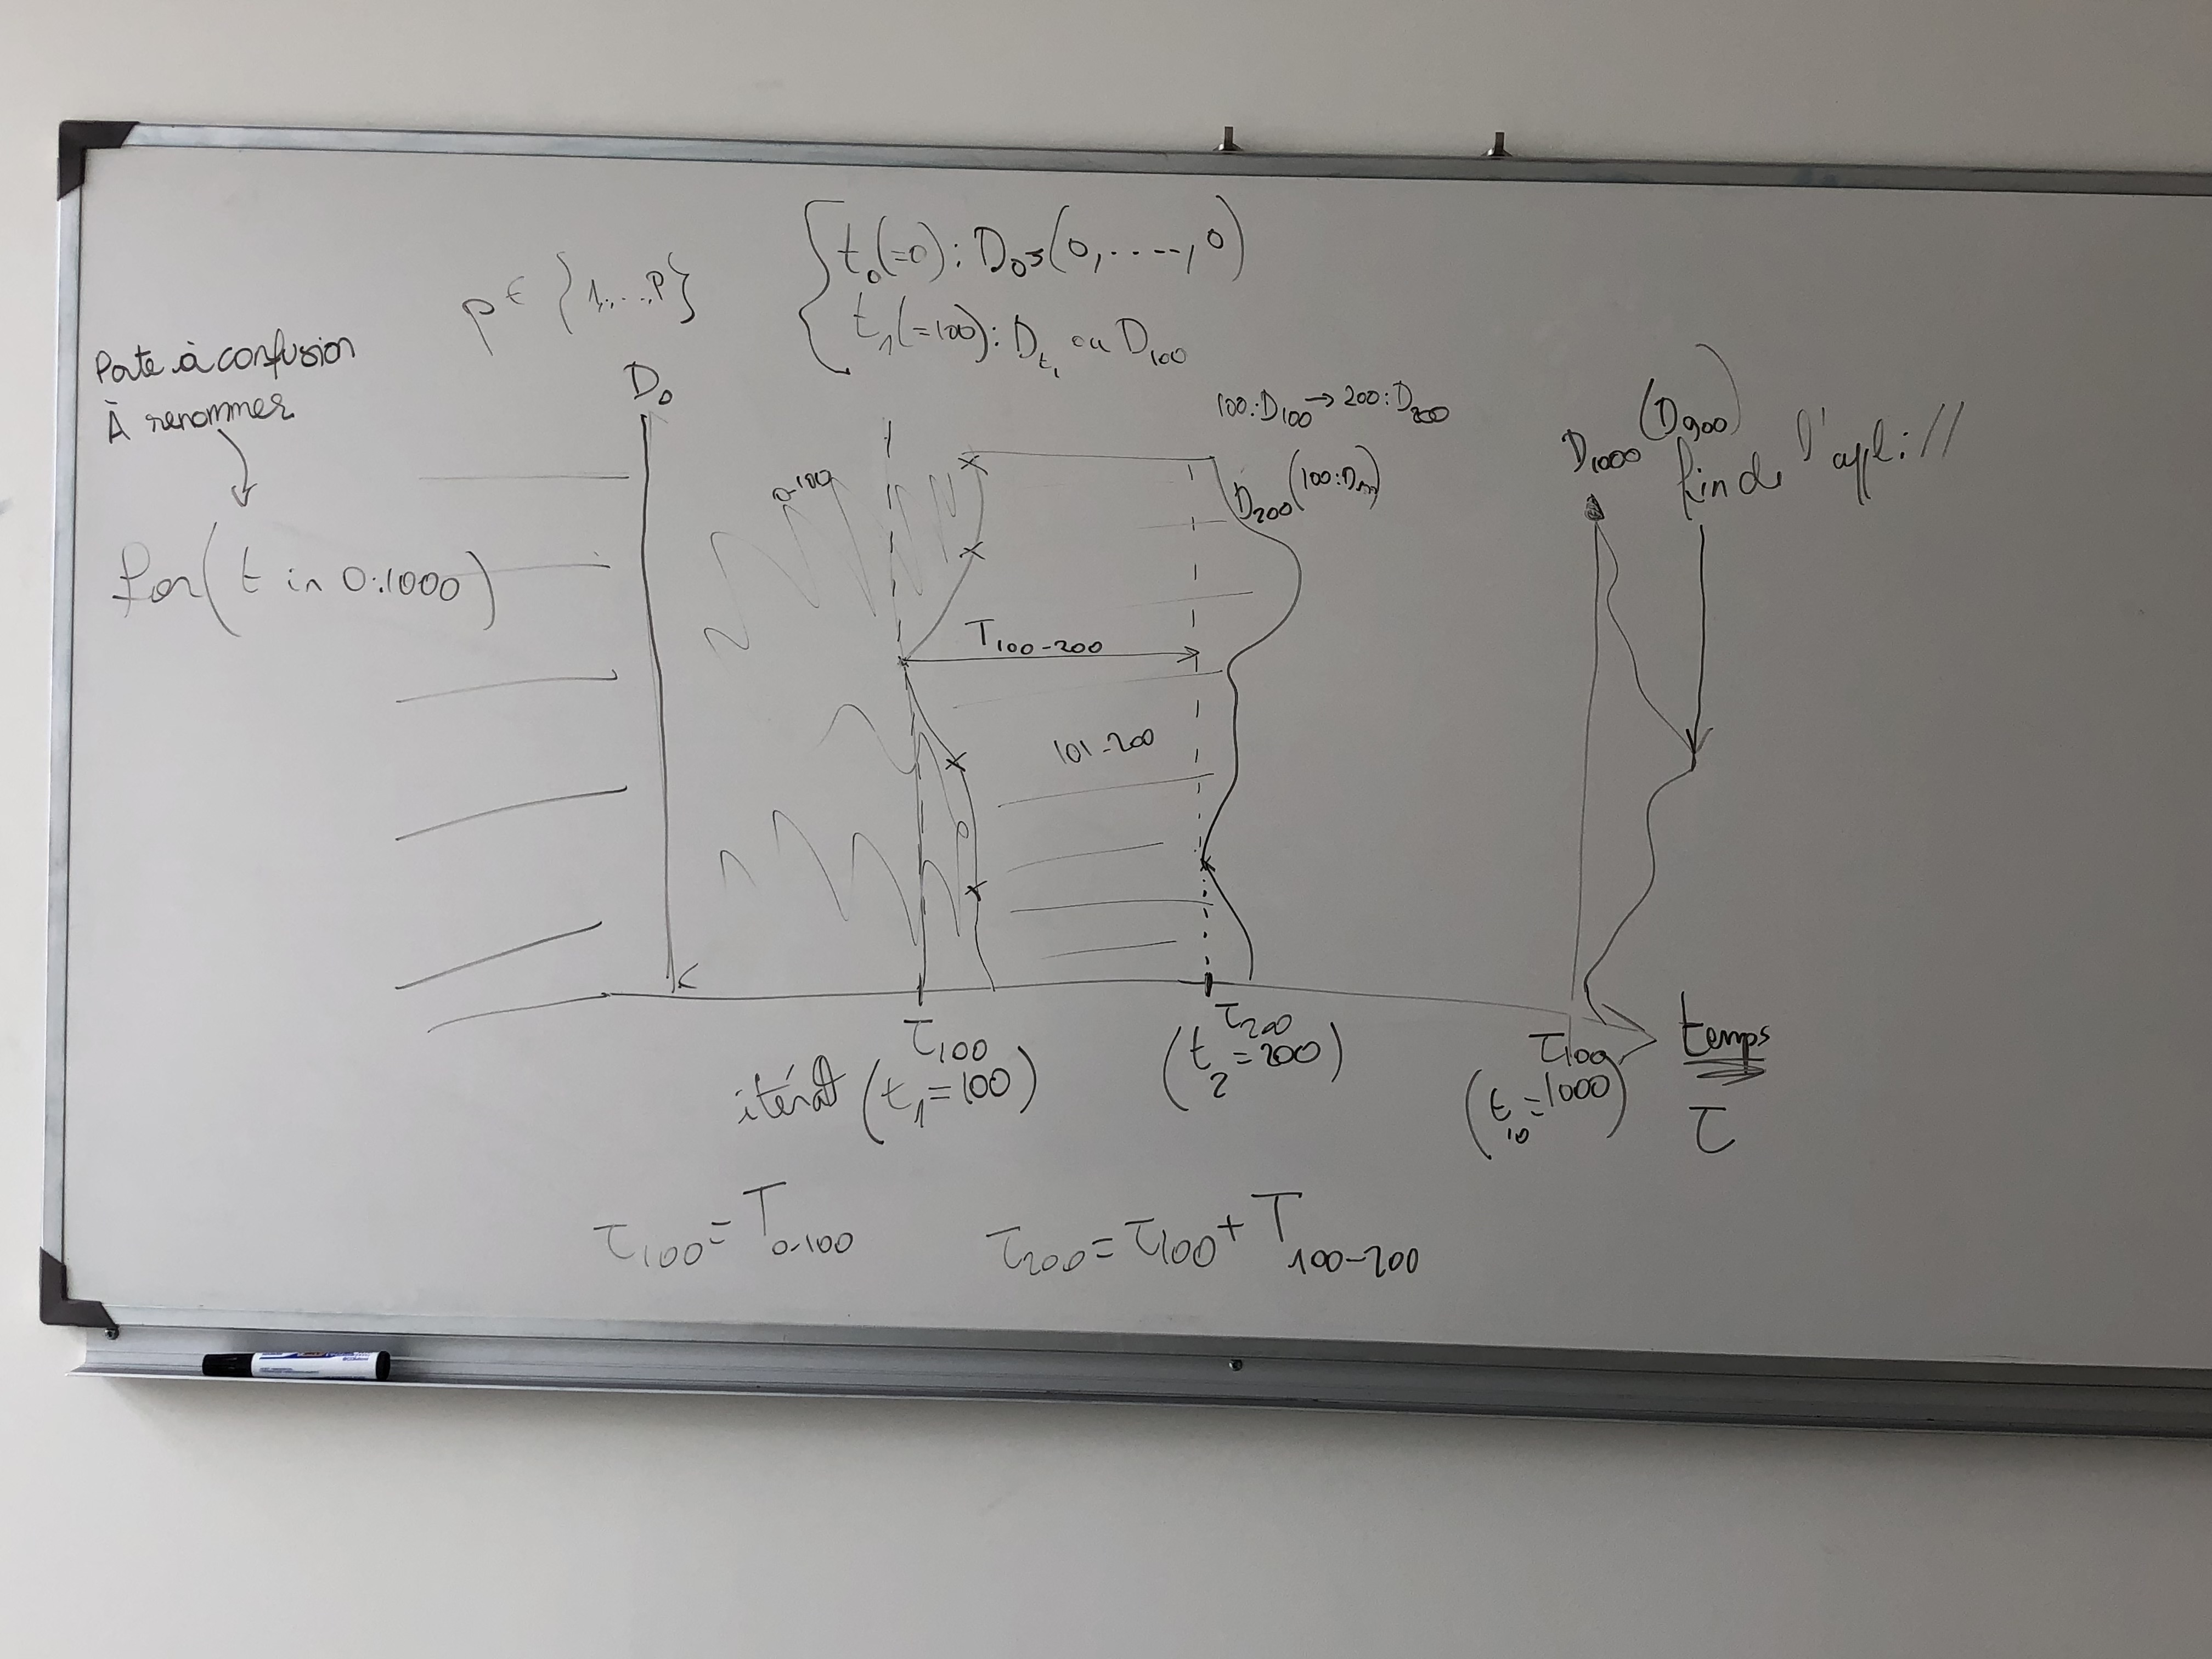 p ∈ {1,...,P}
t₀(=0): D₀=(0,....,0)
t₁(=100): D_t₁ ou D₁₀₀
Porte à confusion
À renommer
for(t in 0:1000)
D₀
0-100
100:D₁₀₀ → 200:D₂₀₀
D₂₀₀
T₁₀₀₋₂₀₀
101-200
D₁₀₀₀ (D₉₀₀)
fin de l'appli //
τ₁₀₀
itérat° (t₁=100)
τ₂₀₀
(t₂=200)
(t₁₀=1000)
temps
τ
τ₁₀₀ = T₀₋₁₀₀
τ₂₀₀ = τ₁₀₀ + T₁₀₀₋₂₀₀